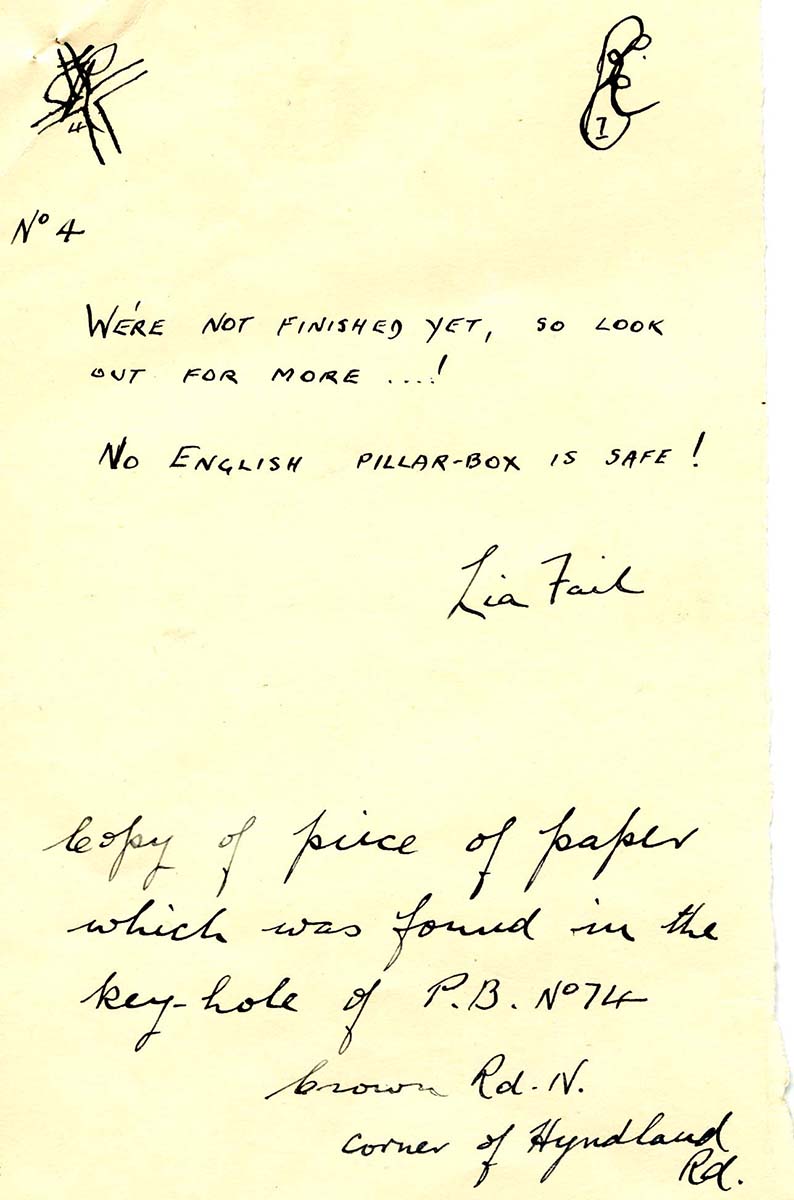 4
I
No 4
WE'RE NOT FINISHED YET, SO LOOK
OUT FOR MORE ....!
NO ENGLISH PILLAR-BOX IS SAFE!
Lia Fail
Copy of piece of paper
which was found in the
key-hole of P.B. No 74
Crown Rd. N.
corner of Hyndland
Rd.